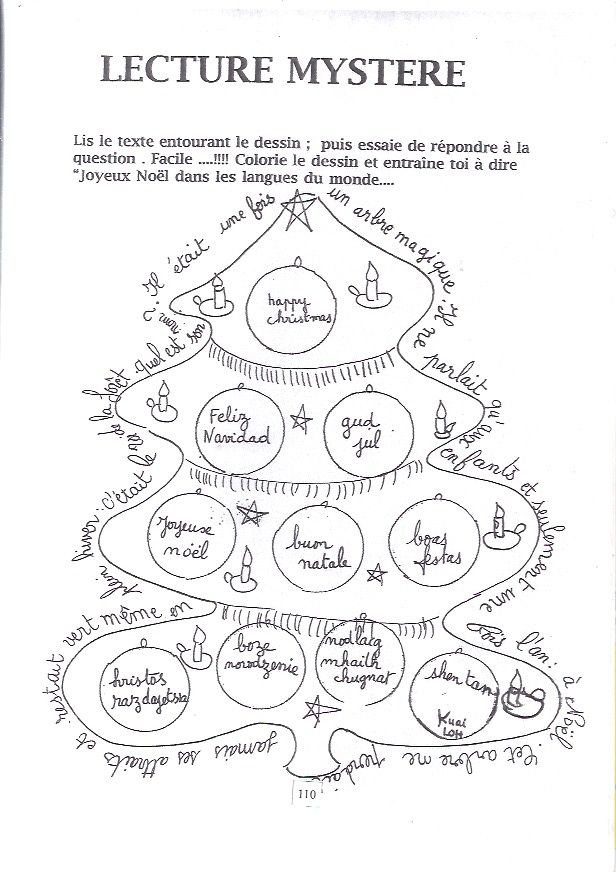 LECTURE MYSTERE
Lis le texte entourant le dessin ; puis essaie de répondre à la
question . Facile ....!!!! Colorie le dessin et entraîne toi à dire
"Joyeux Noël dans les langues du monde....
Il était une fois un arbre magique. Il ne parlait qu'aux enfants et seulement une fois l'an : à Noël. Cet arbre ne perdait jamais ses attraits et restait vert même en plein hiver. C'était le roi de la forêt. Quel est son nom ?
happy
christmas
Feliz
Navidad
gud
jul
joyeuse
noël
buon
natale
boas
festas
hristos
razdajetsia
boze
norodzenie
nodlaig
mhaith
chugnat
shen tan
Kuai
LOH
110